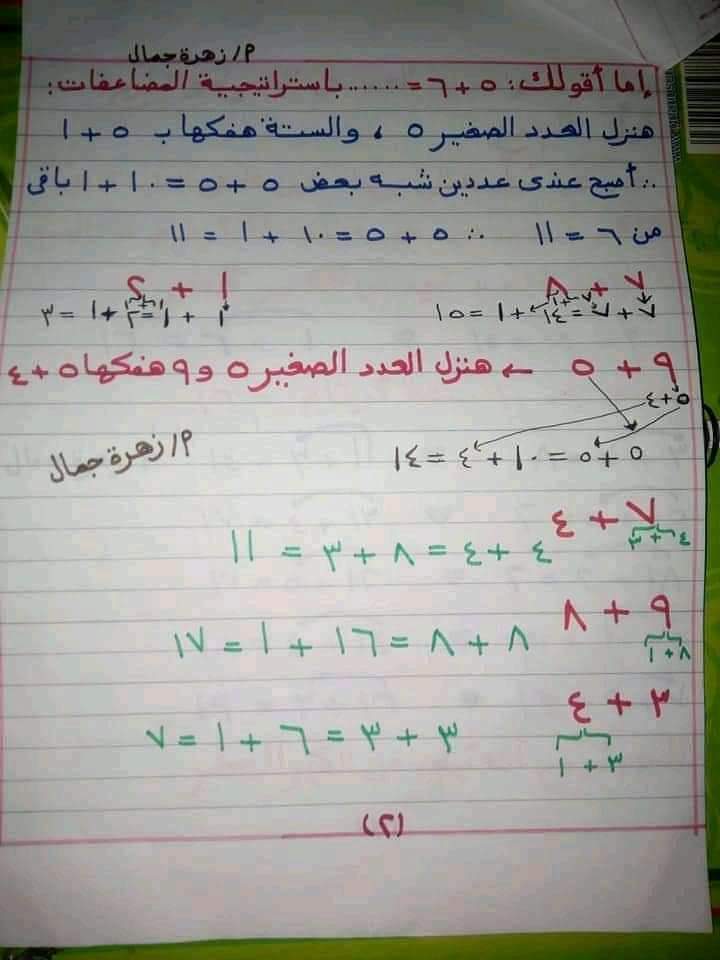 م/ زهرة جمال
إما أقولك: ٥ + ٦ = ...... باستراتيجية المضاعفات:
هنزل العدد الصغير ٥ ، والستة هفكها بـ ٥ + ١
∴ أصبح عندى عددين شبه بعض ٥ + ٥ = ١٠ + ١ باقى
من ٦ = ١١ ∴ ٥ + ٥ = ١٠ + ١ = ١١
٧ + ٨ ١ + ٢
٧ + ١ ١ + ١
٧ + ٧ = ١٤ + ١ = ١٥ ١ + ١ = ٢ + ١ = ٣
٩ + ٥ ← هنزل العدد الصغير ٥ و ٩ هفكها ٥ + ٤
٥ + ٤
٥ + ٥ = ١٠ + ٤ = ١٤
م/ زهرة جمال
٧ + ٤
٤ + ٣
٤ + ٤ = ٨ + ٣ = ١١
٩ + ٨
٨ + ١
٨ + ٨ = ١٦ + ١ = ١٧
٣ + ٤
٣ + ١
٣ + ٣ = ٦ + ١ = ٧
(٢)